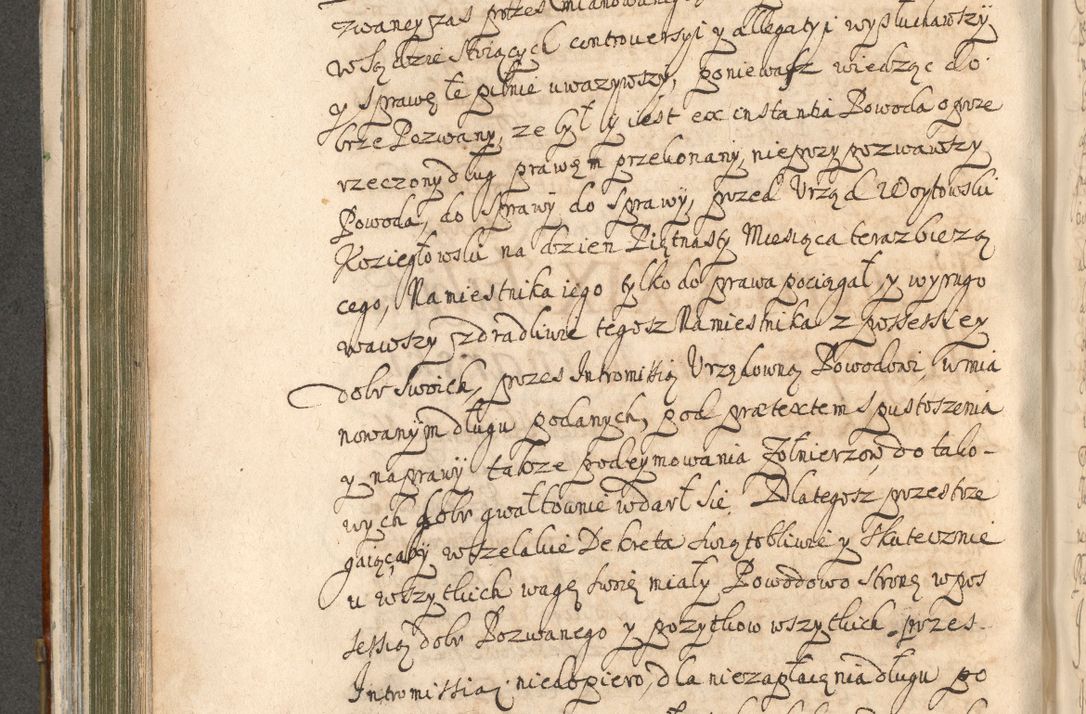 zwaney zas przes mianowane
w Sądzie stoiących controuersyi y allegatyi wysłuchawszy
y sprawę te pilnie uwazywszy, poniewasz wiedząc do-
brze Pozwany, ze był y iest ex instantia Powoda o prze
rzeczony dług prawem przekonany, nieprzypozwawszy
Powoda, do sprawy do sprawy, przed Urząd Woytowski
Koziegłowski na dzien Piętnasty Miesiąca teraz bieżą
cego, Namiestnika iego tylko do prawa pociągał, y wyrugo
wawszy zdradliwie tegosz Namiestnika z possessiey
dobr swoich, przes Intromissią Urzędowną Powodowi, w mia
nowanym długu podanych, pod prætextem spustoszenia
y naprawy takze podeymowania żołnierzow, do tako-
wych dobr gwałtownie wdarł się, Dlategosz przestrze
gaiąc aby wszelakie Dekreta swiątobliwie y skutecznie
u wszytkich wagę swoię miały Powodowo stronę w pos
sessią dobr Pozwanego y pozytkow wszytkich, przes
Intromissią niedopiero, dla niezapłacenia długu po